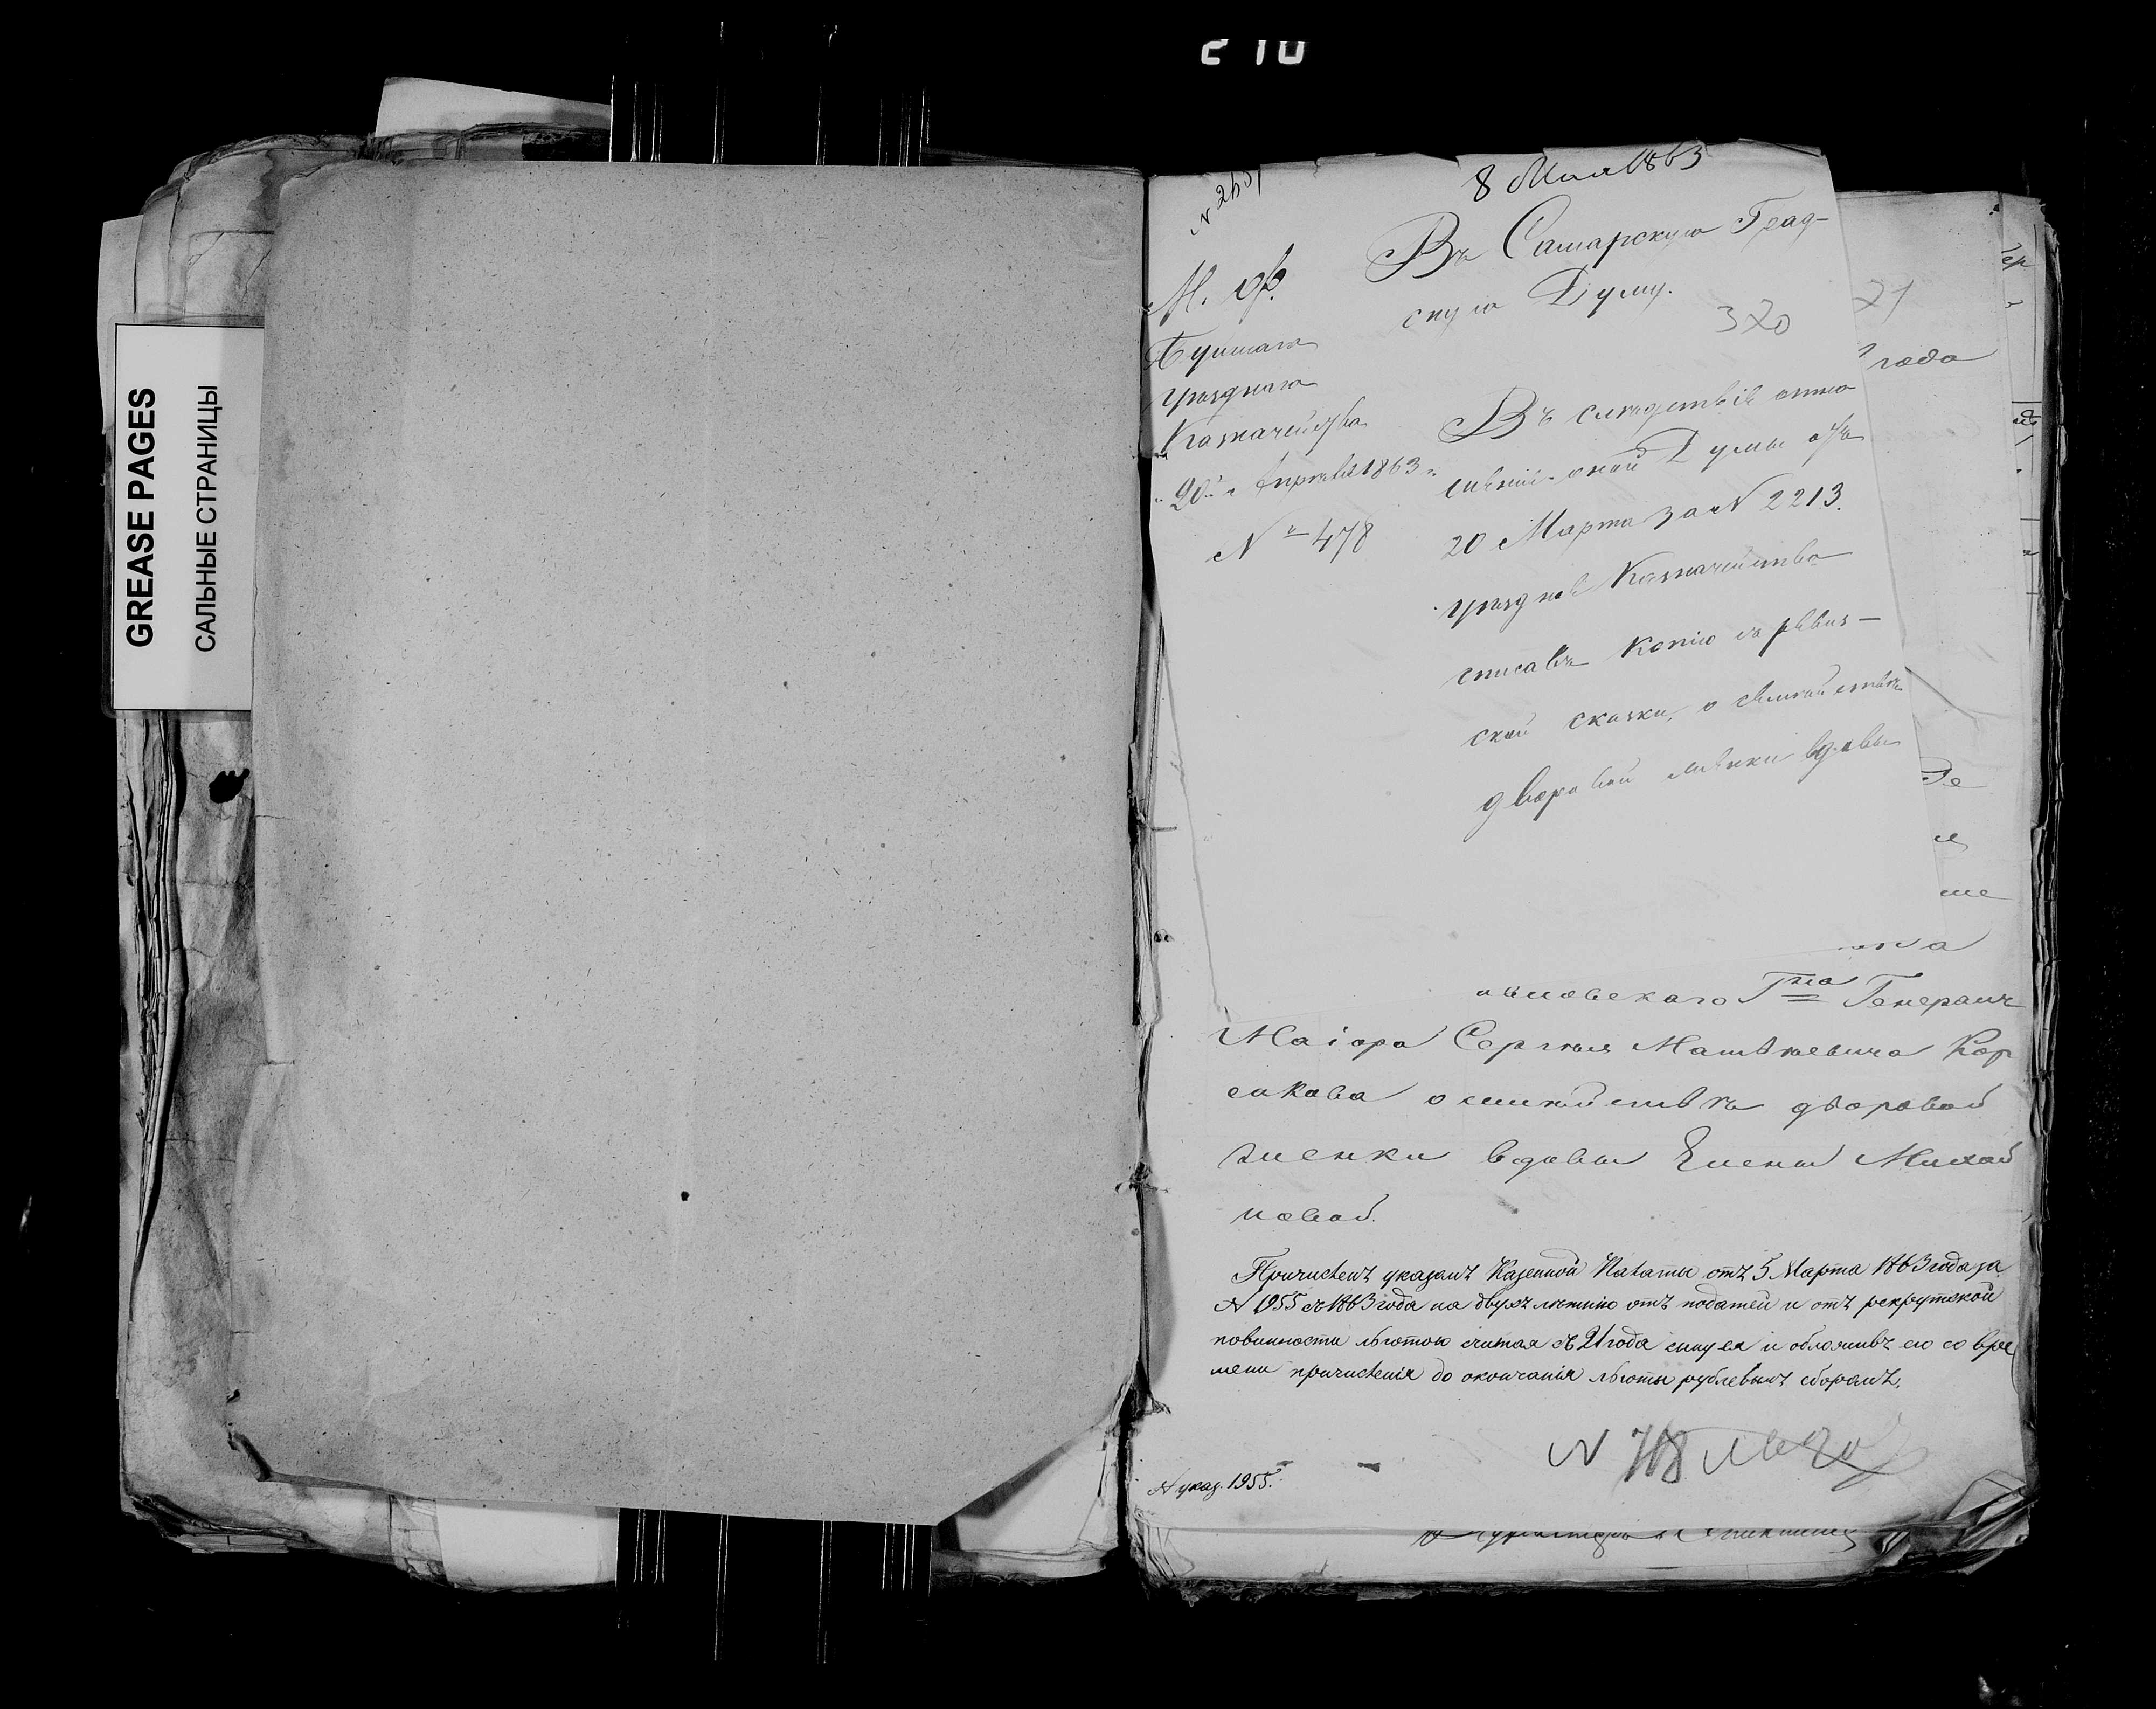 210
GREASE PAGES
САЛЬНЫЕ СТРАНИЦЫ
8 Мая 1863
Въ Самарскую Град-
скую Думу.
320
21
М. Ф.
года
уѣзднаго
Казначейства
"20" Апрѣля 1863 г.
№ 478
Въ слѣдствіе отно
шенія оной Думы отъ
20 Марта за № 2213.
уѣздное Казначейство
списавъ копію съ ревиз-
ской сказки, о семействѣ
дворовой женки вдовы
Гна Генералъ
Маіора Сергѣя Матвѣевича Кор
сакова о семействѣ дворовой
женки вдовы Елены Михай
ловой.
Причисленъ указомъ Казенной Палаты отъ 5 Марта 1863 года за
№ 1955 съ 1863 года на двухъ лѣтнию отъ податей и отъ рекрутской
повинности льготою считая съ 21 года сину ея и обложивъ его со вре
мени причисленія до окончанія льготы рублевымъ сборомъ.
№ указ. 1955.